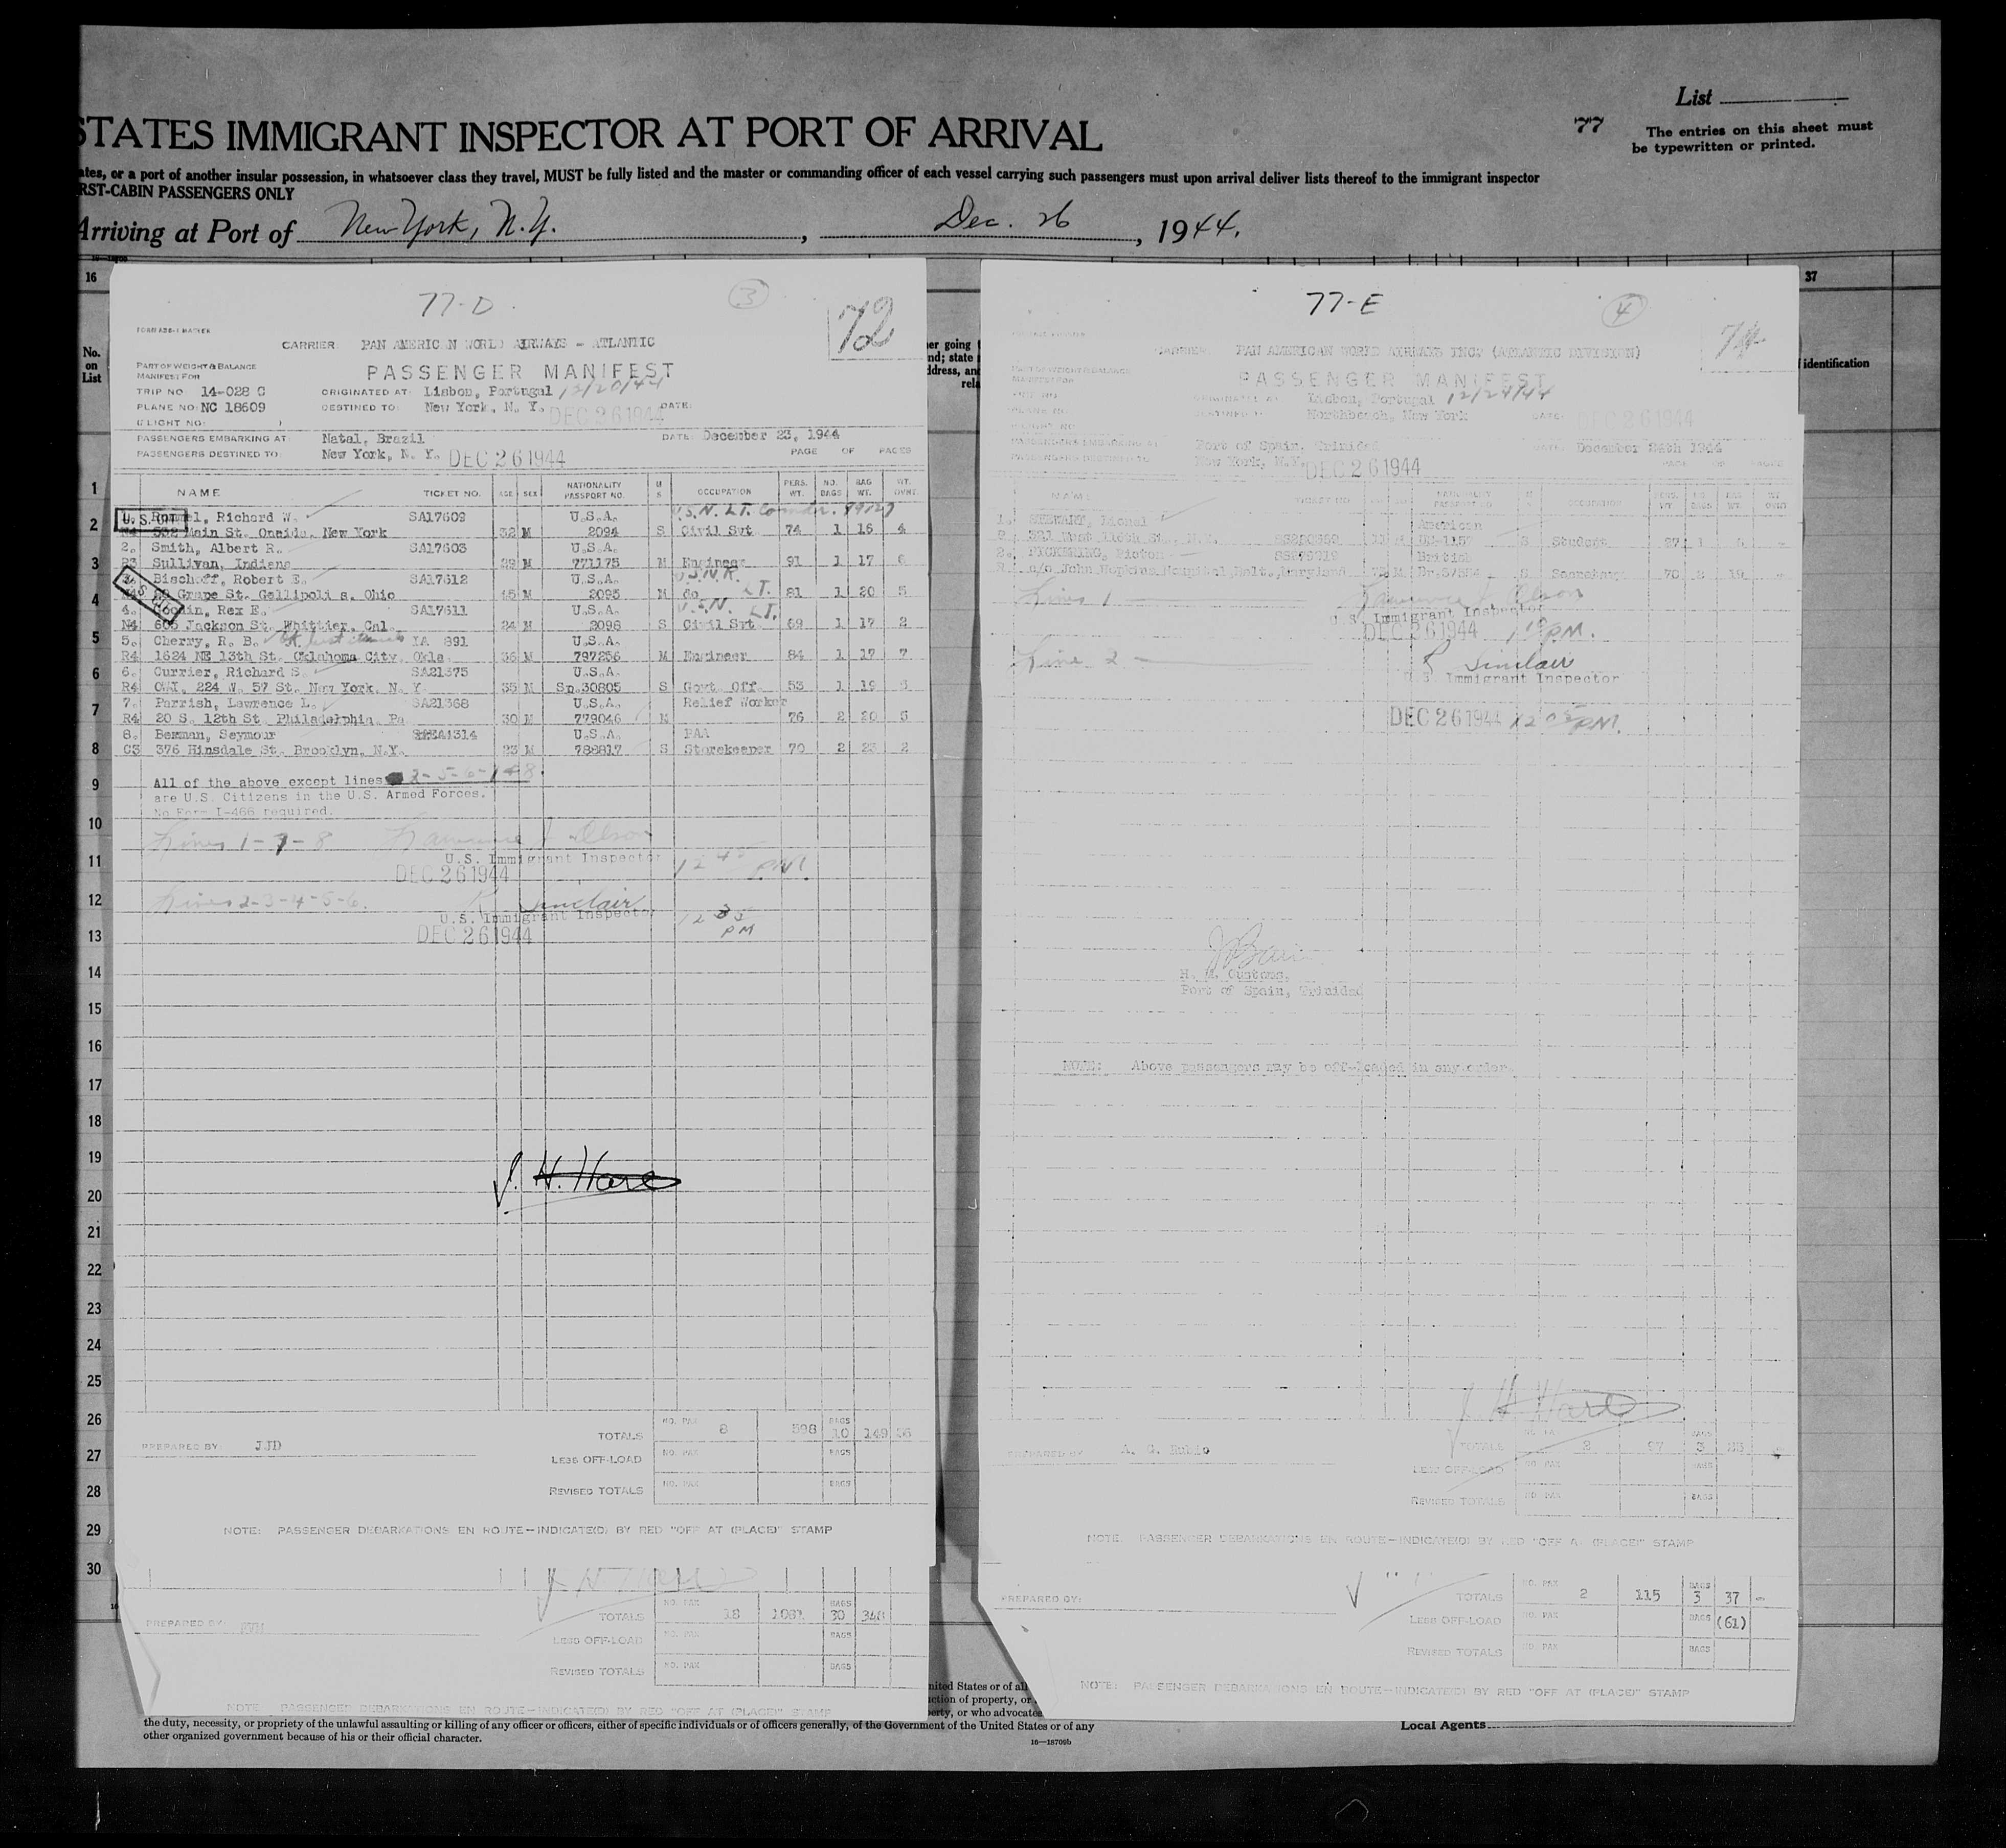 List
77
The entries on this sheet must
be typewritten or printed.
STATES IMMIGRANT INSPECTOR AT PORT OF ARRIVAL
ates, or a port of another insular possession, in whatsoever class they travel, MUST be fully listed and the master or commanding officer of each vessel carrying such passengers must upon arrival deliver lists thereof to the immigrant inspector
RST-CABIN PASSENGERS ONLY
Arriving at Port of New York, N.Y., Dec. 26, 1944.
16
37
No.
on
List
identification
77-D
3
72
CARRIER: PAN AMERICAN WORLD AIRWAYS - ATLANTIC
PART OF WEIGHT & BALANCE
MANIFEST FOR
PASSENGER MANIFEST
TRIP NO: 14-028 C ORIGINATED AT: Lisbon, Portugal 12/20/44
PLANE NO: NC 18609 DESTINED TO: New York, N. Y. DEC 26 1944 DATE:
(FLIGHT NO: )
PASSENGERS EMBARKING AT: Natal, Brazil DATE: December 23, 1944
PASSENGERS DESTINED TO: New York, N. Y. DEC 26 1944 PAGE OF PAGES
NAME TICKET NO. AGE SEX NATIONALITY PASSPORT NO. M S OCCUPATION PERS. WT. NO. BAGS BAG WT. WT. OVWT.
Richard W. SA17609 U.S.A. U.S.N. LT. Comdr.
Main St. Oneida, New York 32 M 2094 S Civil Svt 74 1 16 4
2. Smith, Albert R. SA17603 U.S.A.
Sullivan, Indiana M 771175 M Engineer 91 1 17 6
Bischoff, Robert E. SA17612 U.S.A. U.S.N.R.
Grape St. Gallipolis, Ohio 45 M 2095 M do LT. 81 1 20 5
4. Rex E. SA17611 U.S.A. U.S.N. LT.
N4 605 Jackson St. Whittier, Cal. 24 M 2098 S Civil Svt 69 1 17 2
5. Cherry, R. B. IA 391 U.S.A.
R4 1624 NE 13th St. Oklahoma City, Okla 36 M 797256 M Engineer 84 1 17 7
6. Currier, Richard S. SA21375 U.S.A.
R4 OWI, 224 W. 57 St. New York, N. Y. 35 M Sp.30805 S Govt. Off. 53 1 19
7. Parrish, Lawrence L. SA21368 U.S.A. Relief Worker
R4 20 S. 12th St. Philadelphia, Pa 30 M 779046 M 76 2 20 5
8. Berman, Seymour U.S.A. PAA
C3 376 Hinsdale St. Brooklyn, N.Y. 23 M 788817 S Storekeeper 70 2 23 2
All of the above except lines 2-5-6-7+8
are U.S. Citizens in the U.S. Armed Forces.
No Form I-466 required.
Lines 1-7-8 Lawrence J Olson
U.S. Immigrant Inspector 12 45 PM.
DEC 26 1944
Lines 2-3-4-5-6. R Sinclair
U.S. Immigrant Inspector 12 35 PM
DEC 26 1944
J. H. Hare
TOTALS NO. PAX 8 598 BAGS 10 149 36
PREPARED BY: JJD
LESS OFF-LOAD NO. PAX BAGS
REVISED TOTALS NO. PAX BAGS
NOTE: PASSENGER DEBARKATIONS EN ROUTE—INDICATE(D) BY RED "OFF AT (PLACE)" STAMP
TOTALS NO. PAX 18 BAGS 30
PREPARED BY:
LESS OFF-LOAD NO. PAX BAGS
REVISED TOTALS NO. PAX BAGS
NOTE PASSENGER DEBARKATIONS EN ROUTE—INDICATE(D) BY RED "OFF AT (PLACE)" STAMP
77-E
4
CARRIER: PAN AMERICAN WORLD AIRWAYS INC. (ATLANTIC DIVISION)
PASSENGER MANIFEST
Lisbon, Portugal 12/24/44
Northbeach, New York DATE: DEC 26 1944
PASSENGERS EMBARKING AT Port of Spain, Trinidad DATE: December 24th 1944
PASSENGERS DESTINED TO: New York, N.Y. DEC 26 1944
NAME
1. STEWART, Lionel American
321 West 116th St., N.Y. S Student 27 1
2. PICKERING, British
c/o John Hopkins Hospital, Balt., Maryland M S Secretary 70 2 19
Line 1 Lawrence J Olson
U.S. Immigrant Inspector
DEC 26 1944 PM.
Line 2 - R Sinclair
U.S. Immigrant Inspector
DEC 26 1944 12 05 PM.
H. M. Customs,
Port of Spain, Trinidad
NOTE: Above passengers may be off-loaded in any order.
J H Hare
TOTALS 2 97 3
PREPARED BY A. G. Rubio
LESS OFF-LOAD NO. PAX BAGS
REVISED TOTALS NO. PAX BAGS
NOTE. PASSENGER DEBARKATIONS EN ROUTE—INDICATE(D) BY RED "OFF AT (PLACE)" STAMP
TOTALS NO. PAX 2 115 BAGS 3 37 -
PREPARED BY:
LESS OFF-LOAD NO. PAX BAGS (61)
REVISED TOTALS NO. PAX BAGS
NOTE: PASSENGER DEBARKATIONS EN ROUTE—INDICATE(D) BY RED "OFF AT (PLACE)" STAMP
1
2
3
4
5
6
7
8
9
10
11
12
13
14
15
16
17
18
19
20
21
22
23
24
25
26
27
28
29
30
nited States or of all
ction of property, or
perty, or who advocates
the duty, necessity, or propriety of the unlawful assaulting or killing of any officer or officers, either of specific individuals or of officers generally, of the Government of the United States or of any
other organized government because of his or their official character.
16—18709b
Local Agents